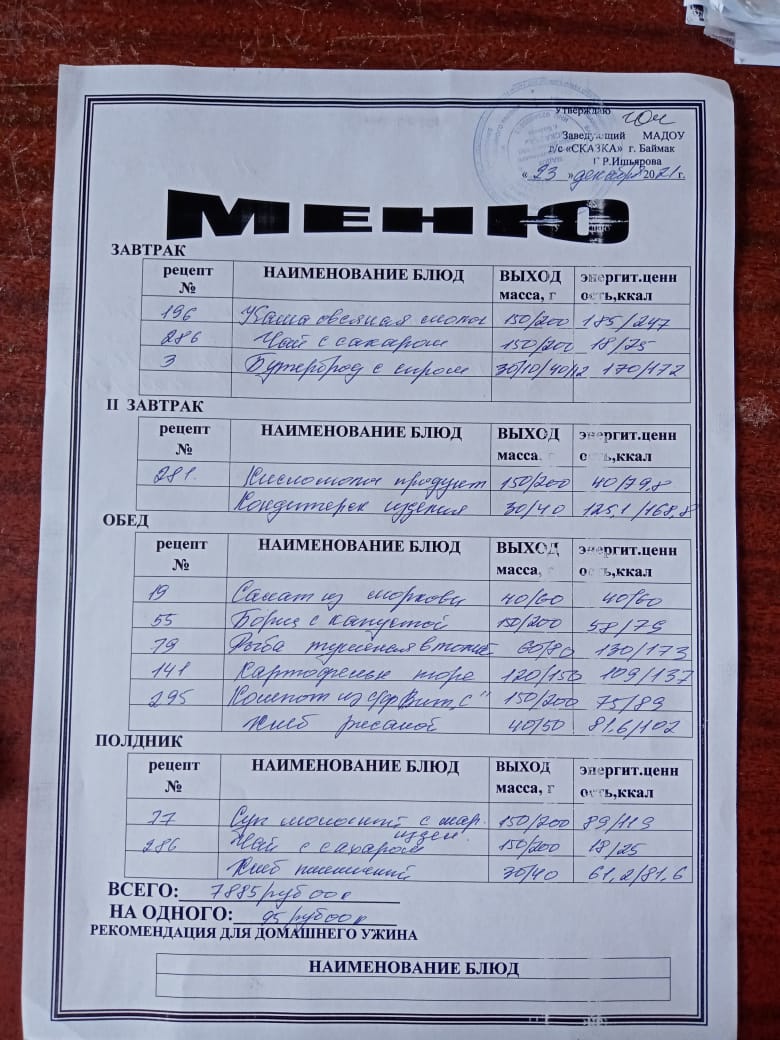 Утверждаю
Заведующий МАДОУ
д/с «СКАЗКА» г. Баймак
Г.Р.Ишьярова
« 23 » декабря 2021 г.
МЕНЮ
ЗАВТРАК
рецепт № НАИМЕНОВАНИЕ БЛЮД ВЫХОД масса, г энергит.ценн ость,ккал
196 Каша овсяная молоч 150/200 185/247
286 Чай с сахаром 150/200 18/25
3 Бутерброд с сыром 30/10/40/12 170/172
II ЗАВТРАК
рецепт № НАИМЕНОВАНИЕ БЛЮД ВЫХОД масса, г энергит.ценн ость,ккал
281. Кисломолоч продукт 150/200 40/79,8
Кондитерск изделия 30/40 125,1/168,8
ОБЕД
рецепт № НАИМЕНОВАНИЕ БЛЮД ВЫХОД масса, г энергит.ценн ость,ккал
19 Салат из моркови 40/60 40/60
55 Борщ с капустой 150/200 58/79
79 Рыба тушеная в томат 60/80 130/173
141 Картофельн пюре 120/150 109/137
295 Компот из с/ф Вит „С" 150/200 75/89
Хлеб ржаной 40/50 81,6/102
ПОЛДНИК
рецепт № НАИМЕНОВАНИЕ БЛЮД ВЫХОД масса, г энергит.ценн ость,ккал
77 Суп молочный с мак. издел. 150/200 89/119
286 Чай с сахаром 150/200 18/25
Хлеб пшеничный 30/40 61,2/81,6
ВСЕГО: 7885/руб 00 к
НА ОДНОГО: 95/руб 00 к
РЕКОМЕНДАЦИЯ ДЛЯ ДОМАШНЕГО УЖИНА
НАИМЕНОВАНИЕ БЛЮД